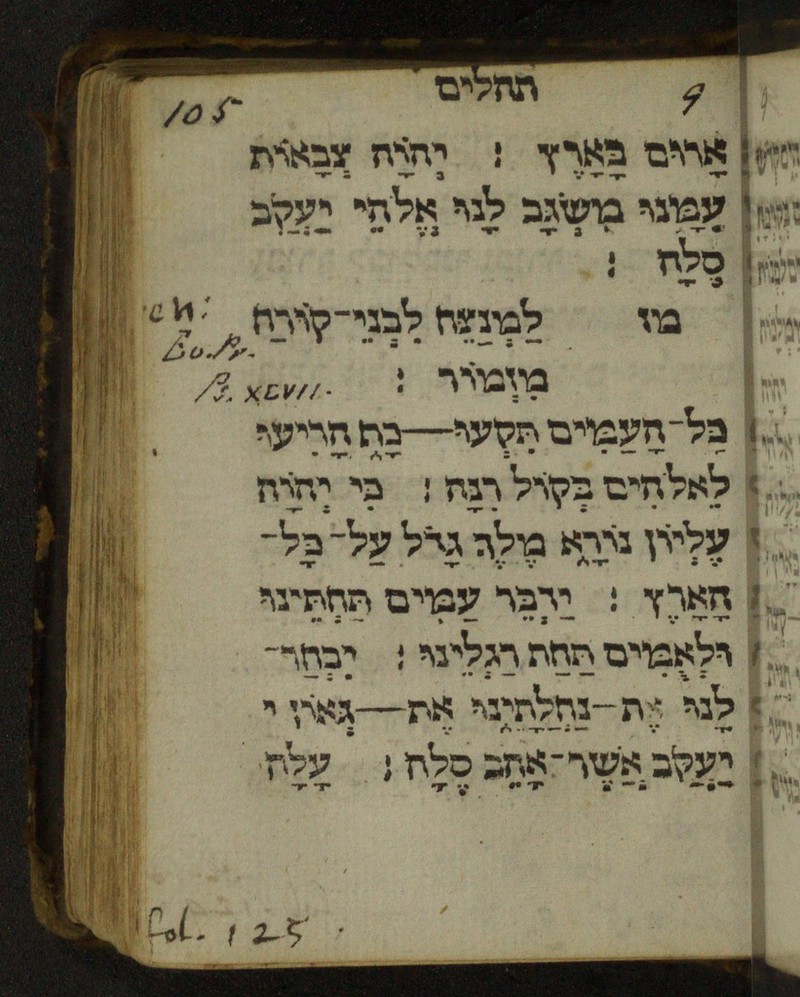 תהלים
9
105
אָרוּם בָּאָרֶץ : יְהֹוָה צְבָאוֹת
עִמָּנוּ מִשְׂגָּב לָנוּ אֱלֹהֵי יַעֲקֹב
סֶלָה :
מז לַמְנַצֵּחַ לִבְנֵי־קוֹרַח
מִזְמוֹר :
Ps. XLVII.
כָּל־הָעַמִּים תִּקְעוּ־כָף הָרִיעוּ
לֵאלֹהִים בְּקוֹל רִנָּה : כִּי יְהֹוָה
עֶלְיוֹן נוֹרָא מֶלֶךְ גָּדֹל עַל־כָּל־
הָאָרֶץ : יַדְבֵּר עַמִּים תַּחְתֵּינוּ
וּלְאֻמִּים תַּחַת רַגְלֵינוּ : יִבְחַר־
לָנוּ אֶת־נַחֲלָתֵינוּ אֶת־גְּאוֹן י
יַעֲקֹב אֲשֶׁר־אָהֵב סֶלָה : עָלָה
fol. 125.